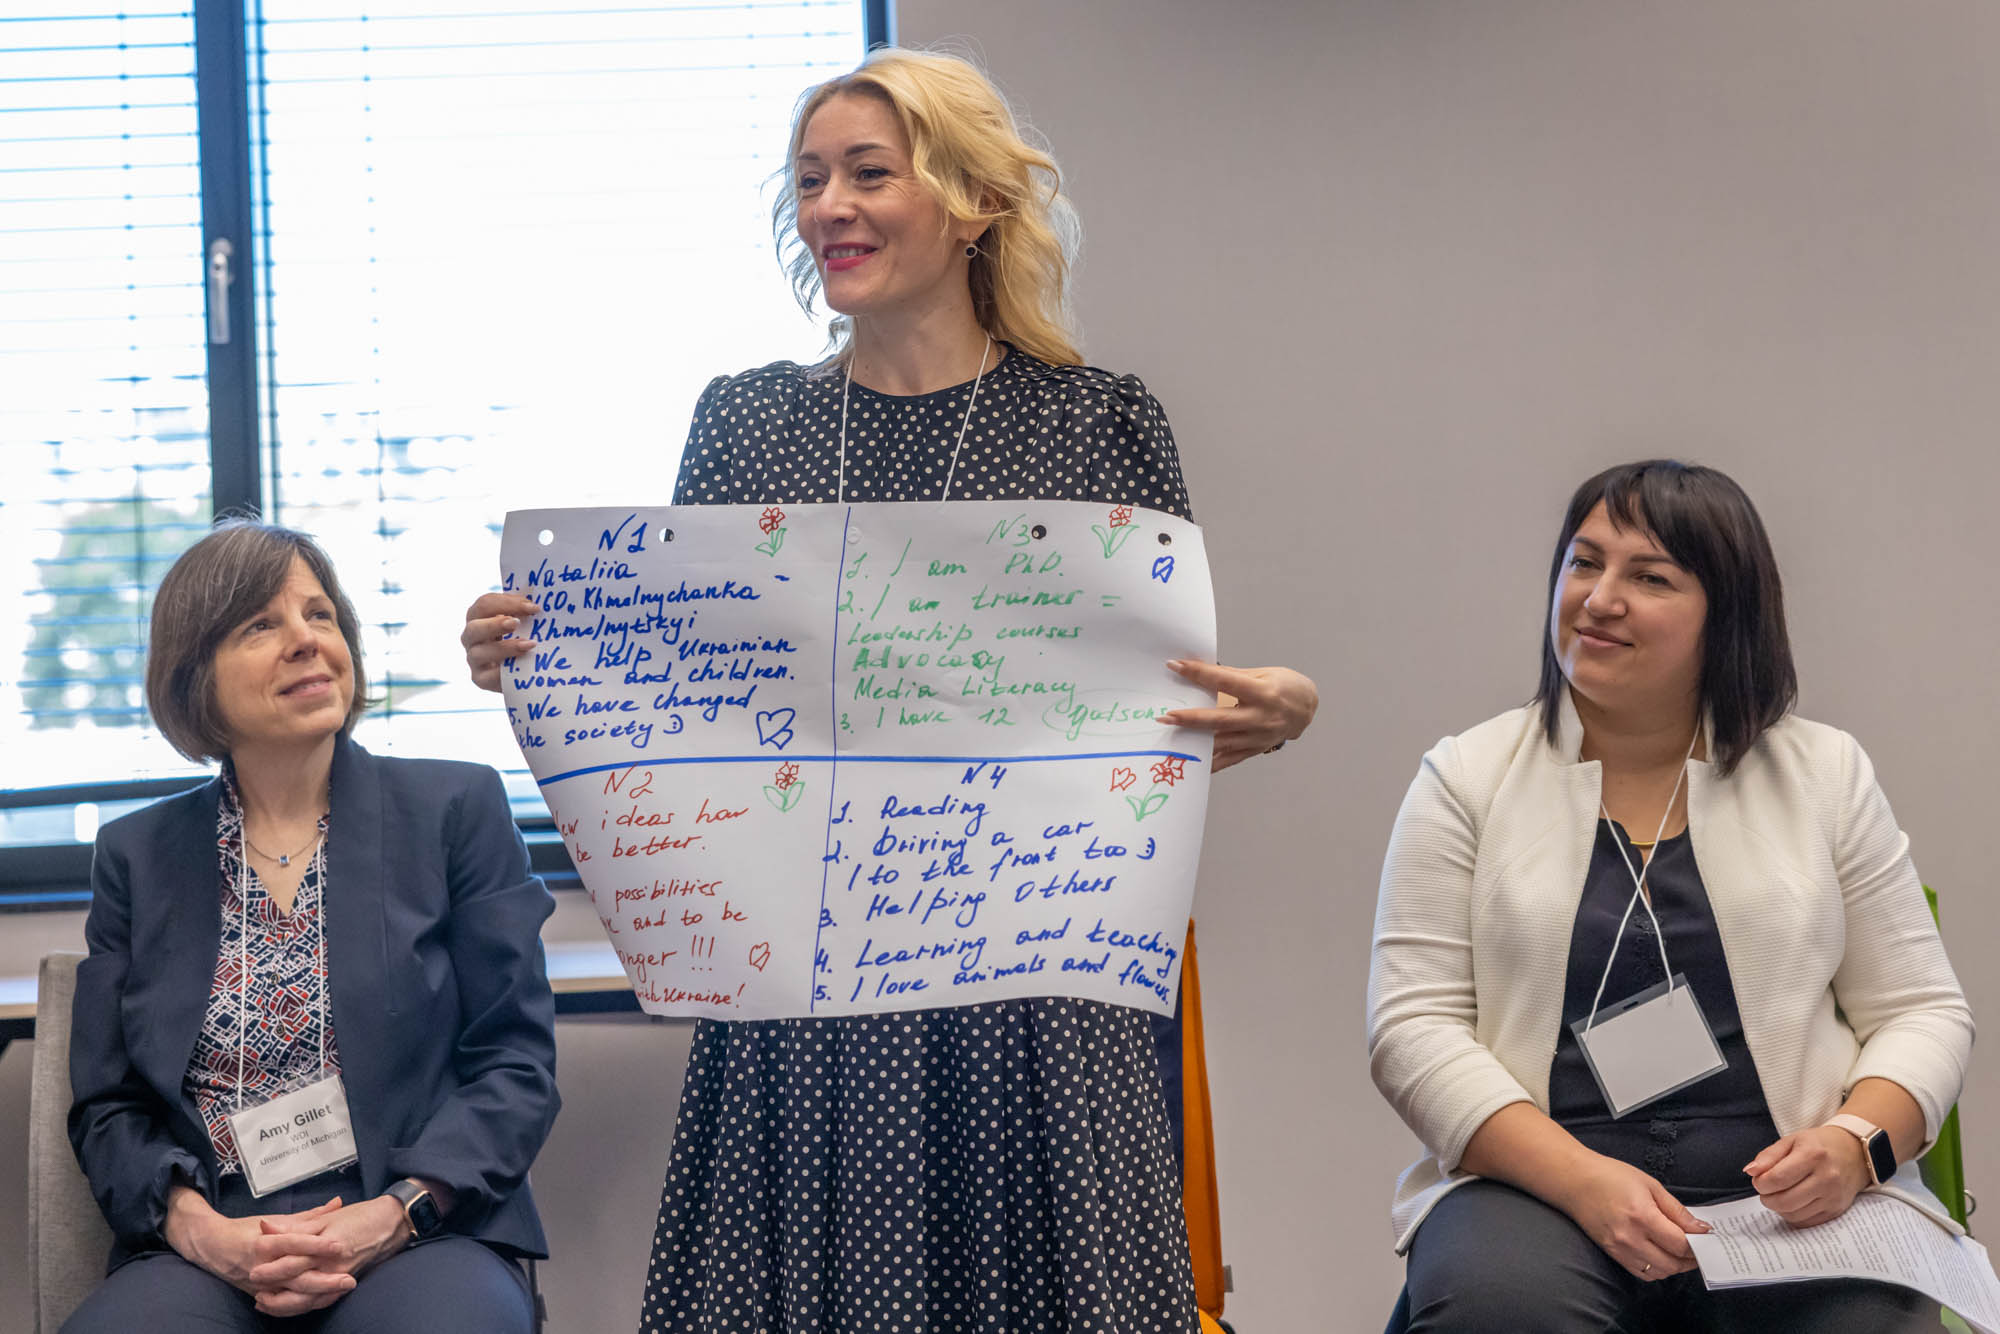 N1
1. Nataliia
NGO „Khmelnychanka -
3. Khmelnytskyi
4. We help Ukrainian
women and children.
5. We have changed
the society :)
N3
1. I am PhD.
2. I am trainer =
Leadership courses
Advocacy
Media Literacy
3. I have 12
N2
ideas how
be better.
possibilities
and to be
!!!
with Ukraine!
N4
1. Reading
2. Driving a car
I to the front too :)
3. Helping others
4. Learning and teaching
5. I love animals and flowers.
Amy Gillet
WDI
University of Michigan